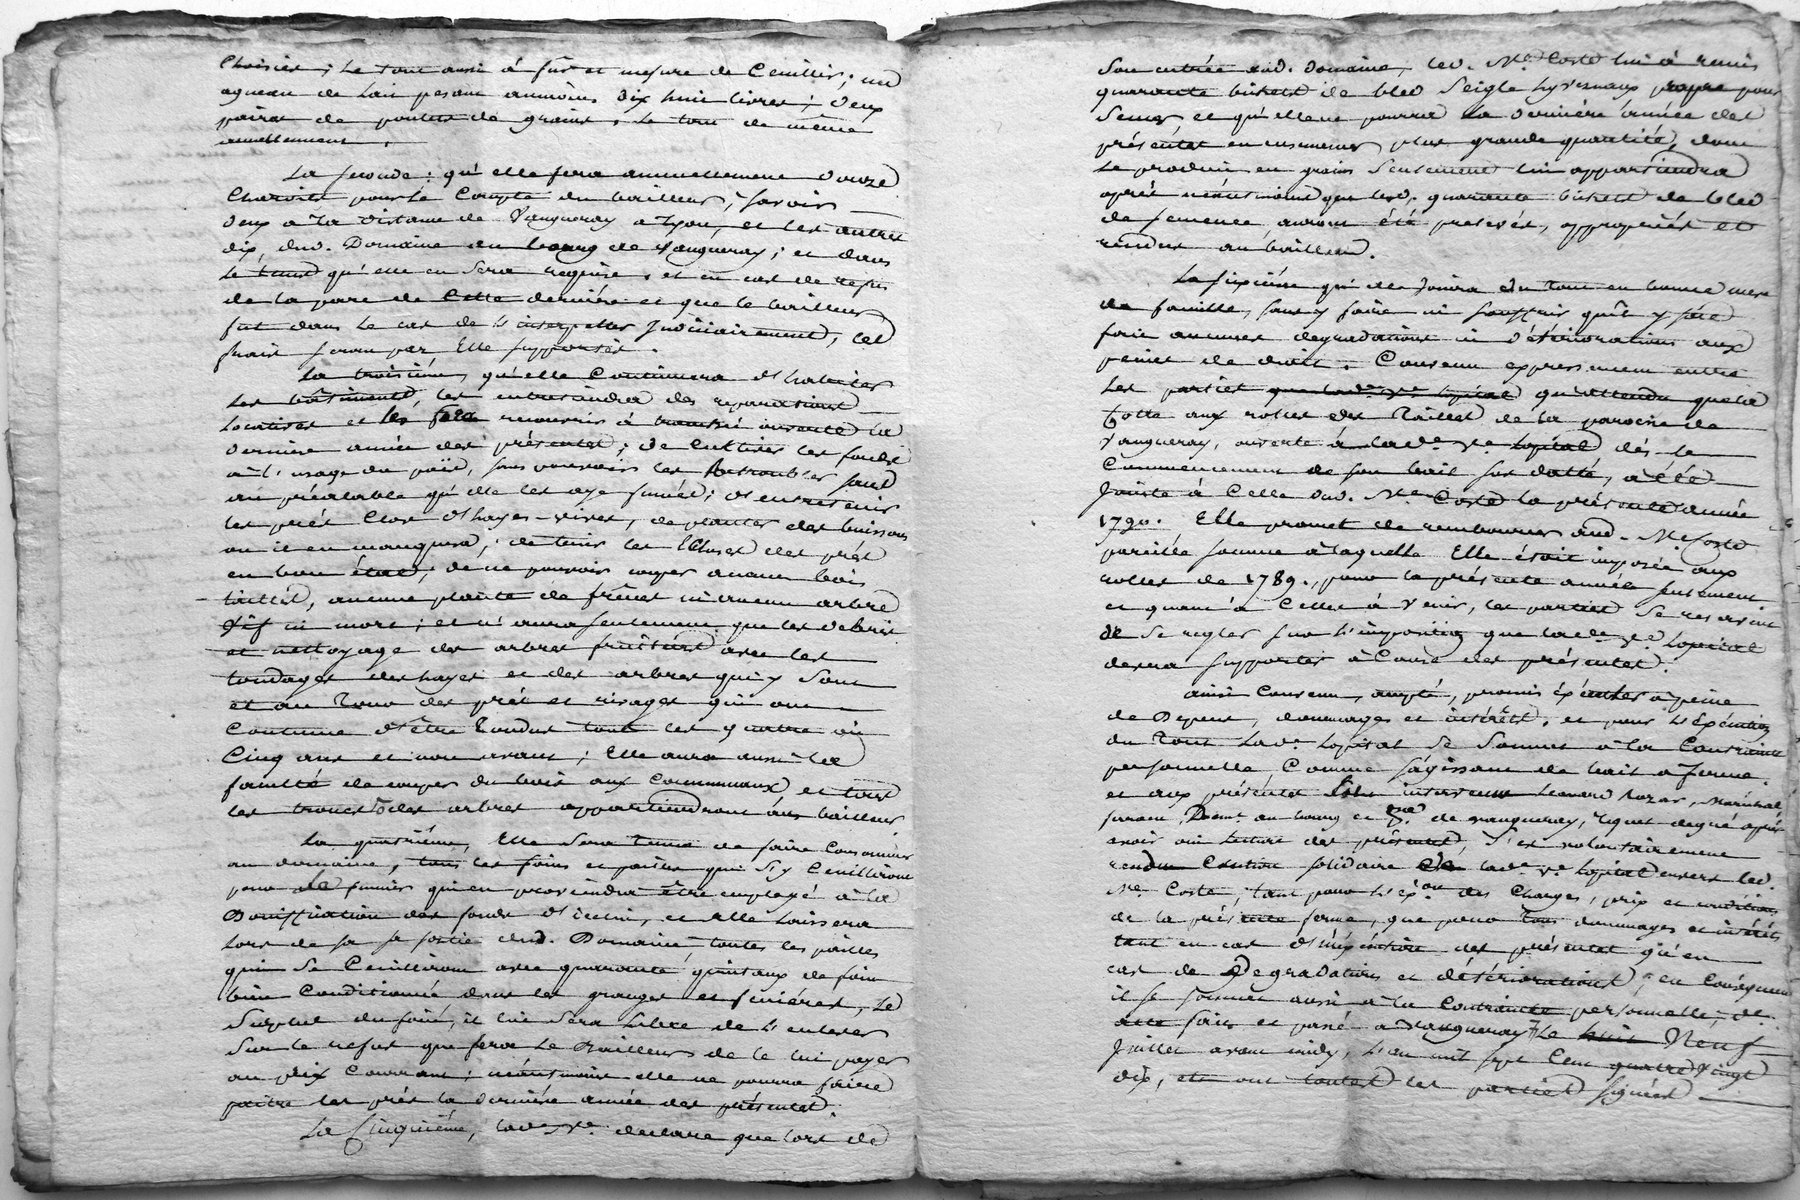 Choisies; Le tout aussi à fur et mesure de Ceuillir; un
agneau de lait pesant aumoins dix huit livres; deux
paires de poulets de grains. Le tout de même
annuellement.
La seconde: qu'elle fera annuellement douze
Charrois pour le Compte du bailleur, savoir
deux à la distance de Vaugneray a Lyon, et les autres
dix, dud. Domaine au bourg de Vaugneray; et dans
le tems qu'elle en Sera requise, et en cas de refus
de la part de Cette dernière et que le bailleur
fut dans le cas de L'interpeller Judiciairement, les
frais seront par Elle supportés.
La troisième, qu'elle Continuera d'habiter
les bâtiments, les entretiendra des reparations
Locatives et les fera recouvrir à durant la
derniere année des présentes; de Cultiver les fonds
à l'usage du païs, sans pouvoir les sauf
au préalable qu'elle les aye fumés; d'entretenir
les prés Clos d'hayes-vives, de planter des buissons
ou il en manquera; de tenir les des prés
en bon état, de ne pouvoir couper aucun bois
taillés, aucune plante de frênes ni aucun arbre
vif ni mort; et n'aura seulement que les debris
et nettoyage des arbres fruitiers avec les
tondages des hayes et des arbres qui y sont
et au Tour des prés et rivages qui ont
Coutume d'être Tondus tous les quatre ou
Cinq ans et non avant; Elle aura aussi la
faculté de couper du bois aux Communaux et tous
les troncs des arbres appartiendront aux bailleur.
La quatrième, Elle Sera Tenue de faire Consommer
au domaine, tous les foins et pailles qui s'y Ceuilliront
pour le fumier qui en proviendra être employé à la
Bonification des fonds d'icelui, et Elle laissera
lors de sa sortie dud. Domaine toutes les pailles
qui Se Ceuilliront avec quarante quintaux de foin
bien Conditionné dans les granges et feniéres, Le
Surplus du foin, il lui Sera libre de L'enlever
Sur le refus que fera le Bailleur de le lui payer
au prix Courrant; néantmoins elle ne pourra faire
paitre les prés la dernière année des présentes.
La Cinquième, lad.e v.e declare que lors de
Son entrée aud. Domaine, led. Me Coste lui à remis
quarante bichets de bled Seigle hyvernaux propre pour
Semer, et qu'elle ne pourra la derniere année des
présentes en ensemencer plus grande quantité, dont
le produit en grains Seulement lui appartiendra
après néantmoins que lesd. quarante bichets de bled
de semence, auront été prelevés, appropriés et
rendus au bailleur.
La sixième qu'elle Jouira du Tout en bonne mere
de famille, sans y faire ni souffrir qu'il y soit
fait aucunes degradations ni détériorations aux
peines de droit. Convenu expressement entre
les parties que lad.e v.e Lopital qu'attendu que la
Cotte aux rolles des Tailles de la paroisse de
Vaugneray, à lad.e v.e Lopital, dès le
Commencement de son bail sus datté, a été
Jointe à Celle dud. Me Coste la présente année
1790. Elle promet de rembourser aud. Me Coste
pareille somme à laquelle Elle étoit imposée aux
rolles de 1789., pour la présente année seulement
et quant à Celles à venir, les parties Se reservent
de Se regler sur L'imposition que lad.e v.e Lopital
devra supporter à Cause des présentes.
ainsi Convenu, accepté, promis éxécuter à peine
de Dépens, dommages et intérêts, et pour L'Exécution
du Tout Lad.e Lopital Se Soumet à la Contrainte
personnelle Comme s'agissant de bail a ferme.
et aux présentes est intervenu Leonard Lozar, Maréchal
ferrant Demt au bourg et p.sse de Vaugneray, lequel après
avoir oui lecture des présentes, s'est volontairement
rendu Caution solidaire de lad.e v.e Lopital envers led.
Me Coste, tant pour L'ex.on des Charges, prix et conditions
de la présente ferme, que pour Tous dommages et intérêts,
tant en cas d'inéxécution des présentes qu'en
cas de Degradations et détériorations; en Conséquence
il se soumet aussi à la Contrainte personnelle; de.
acte fait et passé a Vaugneray Le huit Neuf
Juillet avant midy, L'an mil sept Cent quatre Vingt
dix, et ont toutes les parties Signées